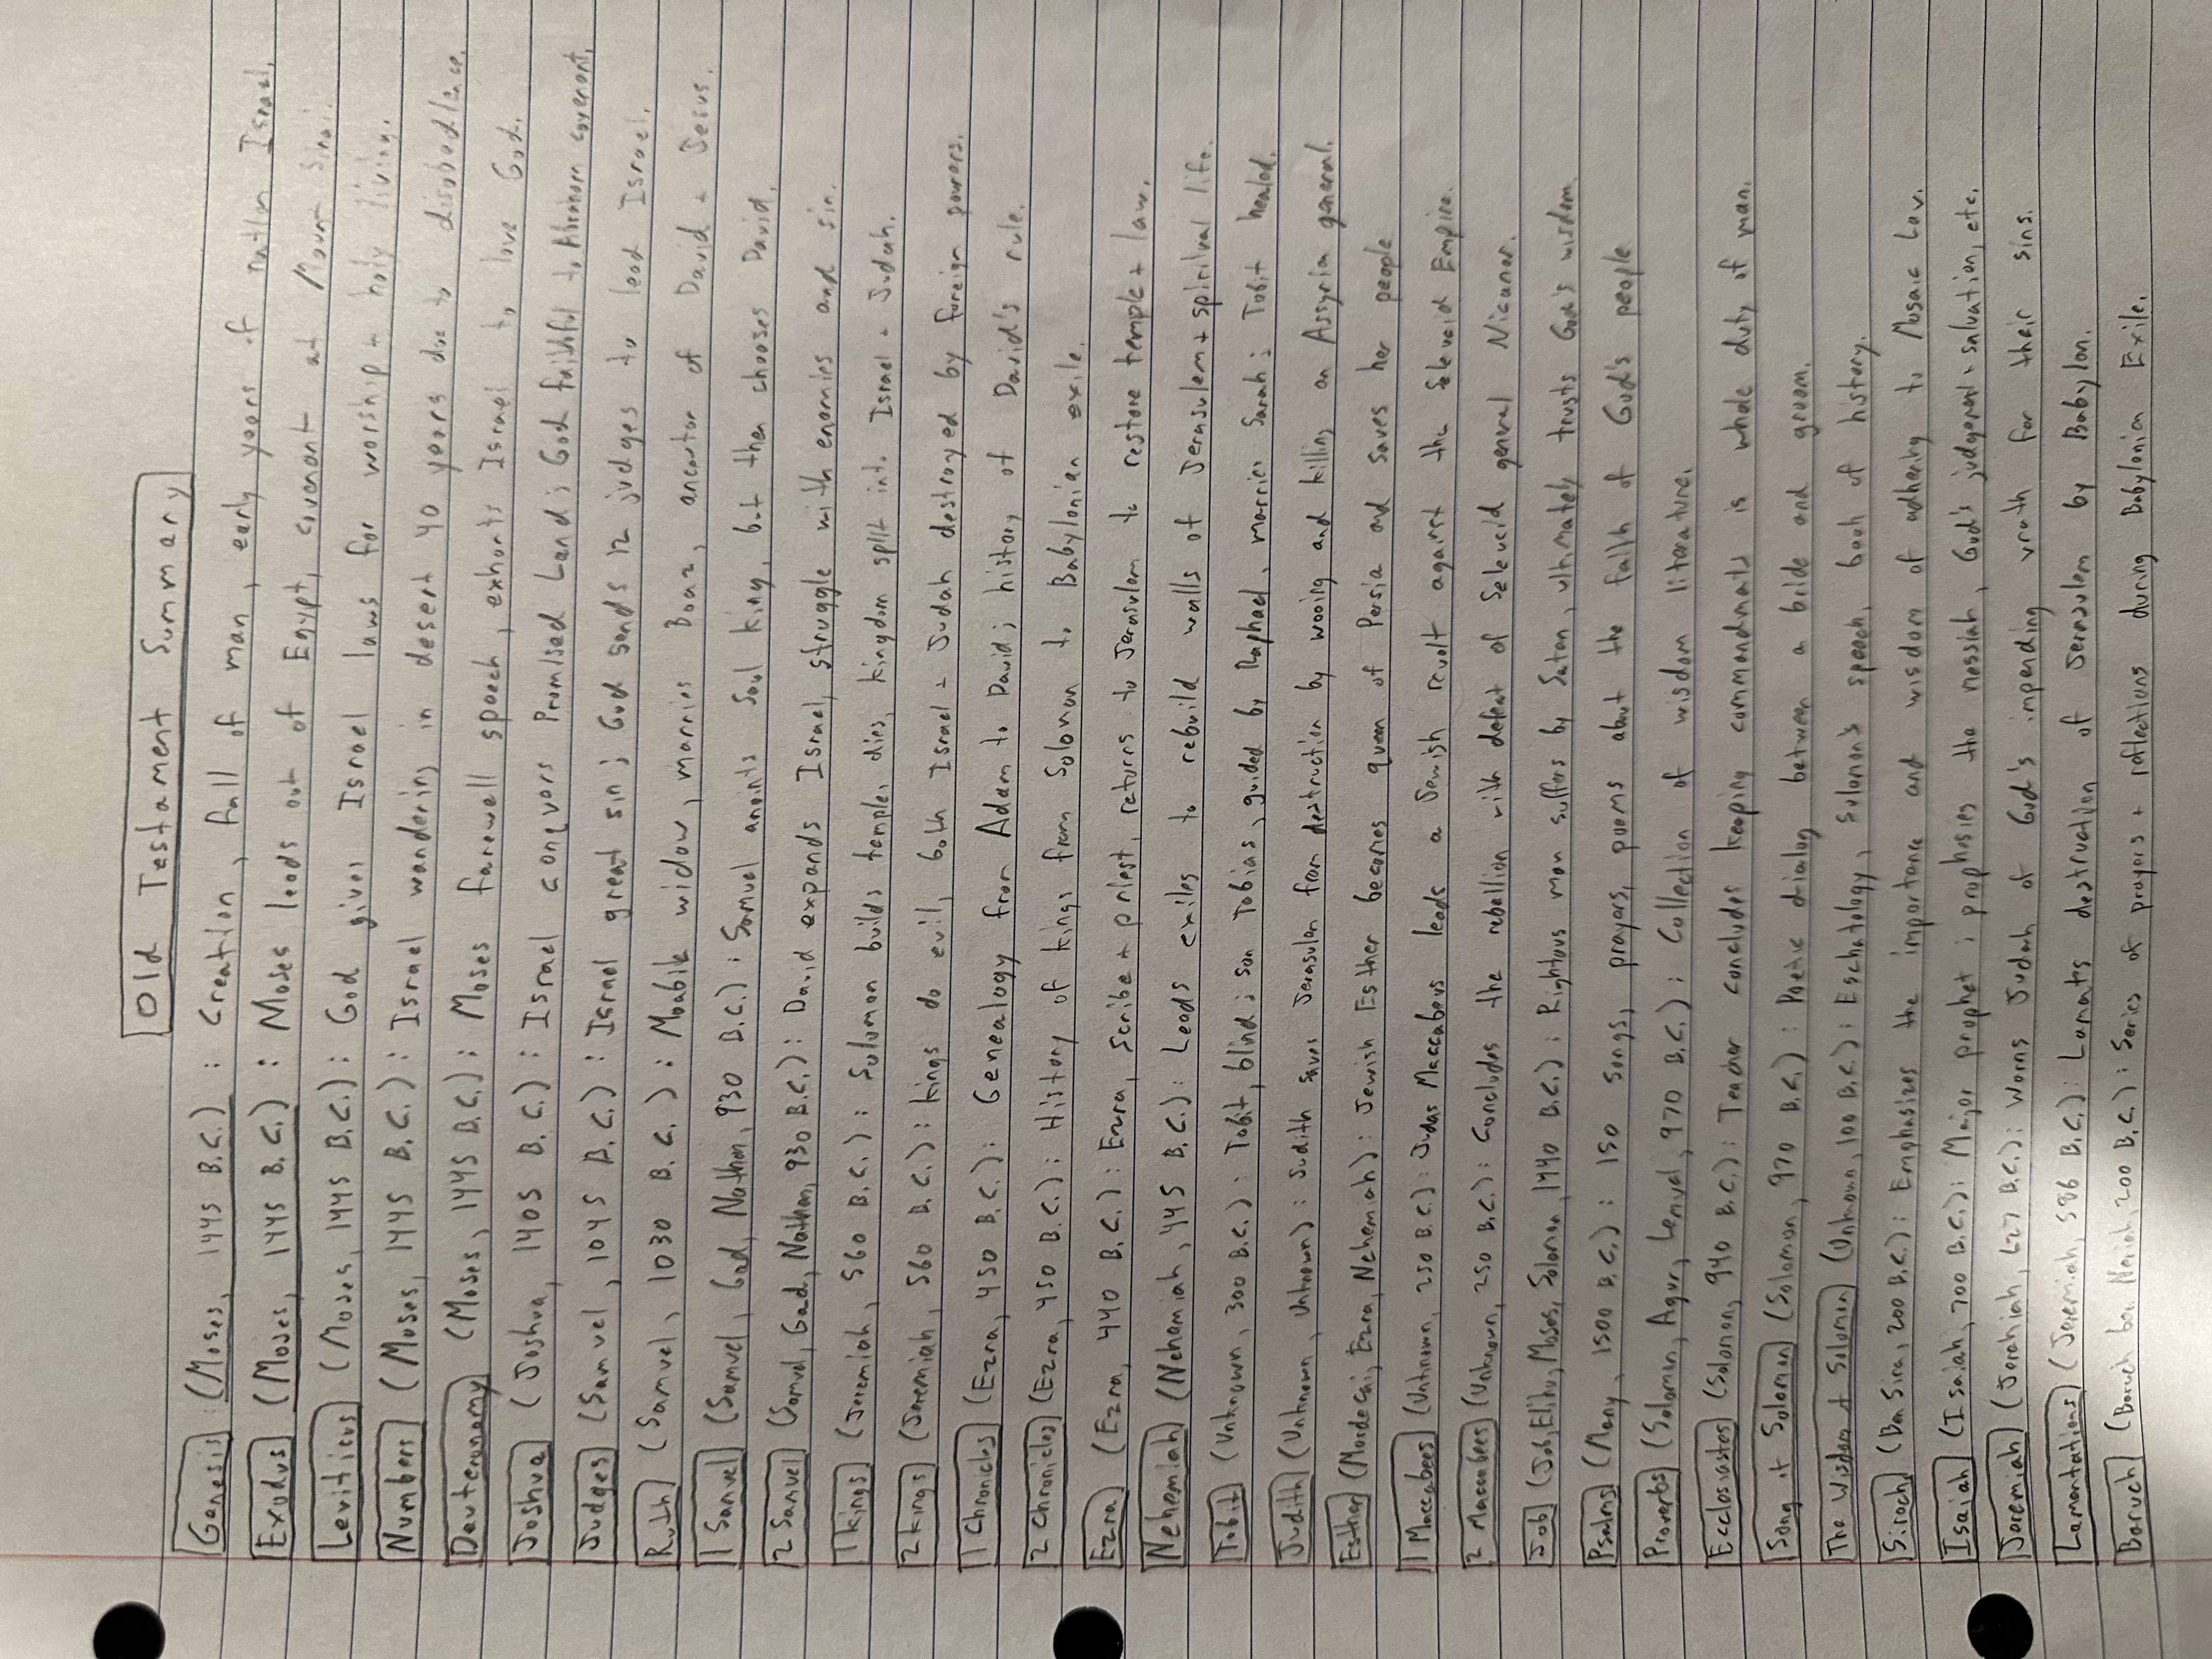 Old Testament Summary
Genesis (Moses, 1445 B.C.) : Creation, fall of man, early years of nation Israel.
Exodus (Moses, 1445 B.C.) : Moses leads out of Egypt, covenant at Mount Sinai.
Leviticus (Moses, 1445 B.C.) : God gives Israel laws for worship + holy living.
Numbers (Moses, 1445 B.C.) : Israel wandering in desert 40 years due to disobedience.
Deuteronomy (Moses, 1445 B.C.) : Moses farewell speech, exhorts Israel to love God.
Joshua (Joshua, 1405 B.C.) : Israel conquers Promised Land; God faithful to Abraham covenent.
Judges (Samuel, 1045 B.C.) : Israel great sin; God sends 12 judges to lead Israel.
Ruth (Samuel, 1030 B.C.) : Moabite widow, marries Boaz, ancestor of David + Jesus.
1 Samuel (Samuel, Gad, Nathan, 930 B.C.) : Samuel anoints Saul king, but then chooses David.
2 Samuel (Samuel, Gad, Nathan, 930 B.C.) : David expands Israel, struggle with enemies and sin.
1 kings (Jeremiah, 560 B.C.) : Solomon builds temple, dies, kingdom split into Israel + Judah.
2 kings (Jeremiah, 560 B.C.) : kings do evil, both Israel + Judah destroyed by foreign powers.
1 Chronicles (Ezra, 450 B.C.) : Genealogy from Adam to David; history of David's rule.
2 Chronicles (Ezra, 450 B.C.) : History of kings from Solomon to Babylonian exile.
Ezra (Ezra, 440 B.C.) : Ezra, Scribe + priest, returns to Jerusalem to restore temple + law.
Nehemiah (Nehemiah, 445 B.C.) : Leads exiles to rebuild walls of Jerusalem + spiritual life.
Tobit (Unknown, 300 B.C.) : Tobit, blind; son Tobias, guided by Raphael, marries Sarah; Tobit healed.
Judith (Unknown, Unknown) : Judith saves Jerusalem from destruction by wooing and killing an Assyria general.
Esther (Mordecai, Ezra, Nehemiah) : Jewish Esther becomes queen of Persia and saves her people
1 Maccabees (Unknown, 250 B.C.) : Judas Maccabeus leads a Jewish revolt against the Seleucid Empire.
2 Maccabees (Unknown, 250 B.C.) : Concludes the rebellion with defeat of Seleucid general Nicanor.
Job (Job, Elihu, Moses, Solomon, 1440 B.C.) : Rightous man suffers by Satan, ultimately trusts God's wisdom.
Psalms (Many, 1500 B.C.) : 150 songs, prayers, poems about the faith of God's people
Proverbs (Solomon, Agur, Lemuel, 970 B.C.) : Collection of wisdom literature.
Ecclesiastes (Solomon, 940 B.C.) : Teacher concludes keeping commandments is whole duty of man.
Song of Solomon (Solomon, 970 B.C.) : Poetic dialog between a bride and groom.
The Wisdom of Solomon (Unknown, 100 B.C.) : Eschatology, Solomon's speech, book of history.
Sirach (Ben Sira, 200 B.C.) : Emphasizes the importance and wisdom of adhering to Mosaic Law.
Isaiah (Isaiah, 700 B.C.) : Major prophet; prophesies the messiah, God's judgement + salvation, etc.
Jeremiah (Jeremiah, 627 B.C.) : Warns Judah of God's impending wrath for their sins.
Lamentations (Jeremiah, 586 B.C.) : Laments destruction of Jerusalem by Babylon.
Baruch (Baruch ben Neriah, 200 B.C.) : Series of prayers + reflections during Babylonian Exile.